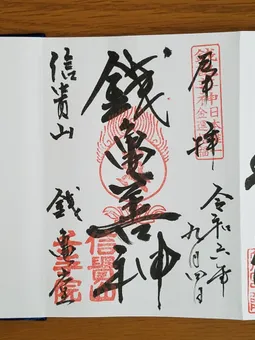 奉拝
令和六年九月四日
銭亀善神
信貴山
銭亀堂